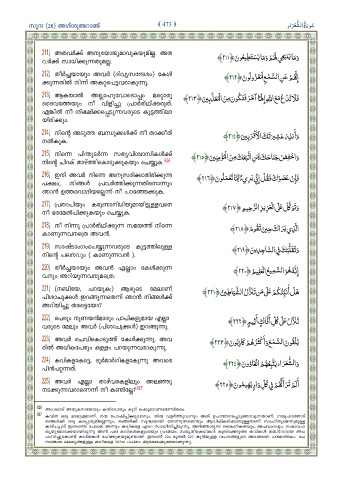 സൂറ (26) അശ്ശുഅറാഅ് ﴾ 473 ﴿ سُورَةُ الشُّعَرَاءِ
211) അതവര്‍ക്ക് അനുയോജ്യമാവുകയുമില്ല. അത
വര്‍ക്ക് സാധിക്കുന്നതുമല്ല.
وَمَا يَنْبَغِي لَهُمْ وَمَا يَسْتَطِيعُونَ ﴿٢١١﴾
212) തീര്‍ച്ചയായും അവര്‍ (ദിവ്യസന്ദേശം) കേള്‍
ക്കുന്നതില്‍ നിന്ന് അകറ്റപ്പെട്ടവരാകുന്നു.
إِنَّهُمْ عَنِ السَّمْعِ لَمَعْزُولُونَ ﴿٢١٢﴾
213) ആകയാല്‍ അല്ലാഹുവോടൊപ്പം മറ്റൊരു
ദൈവത്തെയും നീ വിളിച്ചു പ്രാര്‍ത്ഥിക്കരുത്.
എങ്കില്‍ നീ ശിക്ഷിക്കപ്പെടുന്നവരുടെ കൂട്ടത്തിലാ
യിരിക്കും.
فَلَا تَدْعُ مَعَ اللَّهِ إِلَٰهًا آخَرَ فَتَكُونَ مِنَ الْمُعَذَّبِينَ ﴿٢١٣﴾
214) നിന്റെ അടുത്ത ബന്ധുക്കള്‍ക്ക് നീ താക്കീത്
നല്‍കുക.
وَأَنْذِرْ عَشِيرَتَكَ الْأَقْرَبِينَ ﴿٢١٤﴾
215) നിന്നെ പിന്തുടര്‍ന്ന സത്യവിശ്വാസികള്‍ക്ക്
നിന്റെ ചിറക് താഴ്ത്തികൊടുക്കുകയും ചെയ്യുക.
وَاخْفِضْ جَنَاحَكَ لِمَنِ اتَّبَعَكَ مِنَ الْمُؤْمِنِينَ ﴿٢١٥﴾
216) ഇനി അവര്‍ നിന്നെ അനുസരിക്കാതിരിക്കുന്ന
പക്ഷം, നിങ്ങള്‍ പ്രവര്‍ത്തിക്കുന്നതിനൊന്നും
ഞാന്‍ ഉത്തരവാദിയല്ലെന്ന് നീ പറഞ്ഞേക്കുക.
فَإِنْ عَصَوْكَ فَقُلْ إِنِّي بَرِيءٌ مِمَّا تَعْمَلُونَ ﴿٢١٦﴾
217) പ്രതാപിയും കരുണാനിധിയുമായിട്ടുള്ളവനെ
നീ ഭരമേല്‍പിക്കുകയും ചെയ്യുക.
وَتَوَكَّلْ عَلَى الْعَزِيزِ الرَّحِيمِ ﴿٢١٧﴾
218) നീ നിന്നു പ്രാര്‍ത്ഥിക്കുന്ന സമയത്ത് നിന്നെ
കാണുന്നവനത്രെ അവന്‍.
الَّذِي يَرَاكَ حِينَ تَقُومُ ﴿٢١٨﴾
219) സാഷ്ടാംഗംചെയ്യുന്നവരുടെ കൂട്ടത്തിലുള്ള
നിന്റെ ചലനവും ( കാണുന്നവന്‍ ).
وَتَقَلُّبَكَ فِي السَّاجِدِينَ ﴿٢١٩﴾
220) തീര്‍ച്ചയായും അവന്‍ എല്ലാം കേള്‍ക്കുന്ന
വനും അറിയുന്നവനുമത്രെ.
إِنَّهُ هُوَ السَّمِيعُ الْعَلِيمُ ﴿٢٢٠﴾
221) (നബിയേ, പറയുക:) ആരുടെ മേലാണ്
പിശാചുക്കള്‍ ഇറങ്ങുന്നതെന്ന് ഞാന്‍ നിങ്ങള്‍ക്ക്
അറിയിച്ചു തരട്ടെയോ?
هَلْ أُنَبِّئُكُمْ عَلَىٰ مَنْ تَنَزَّلُ الشَّيَاطِينُ ﴿٢٢١﴾
222) പെരും നുണയന്‍മാരും പാപികളുമായ എല്ലാ
വരുടെ മേലും അവര്‍ (പിശാചുക്കള്‍) ഇറങ്ങുന്നു.
تَنَزَّلُ عَلَىٰ كُلِّ أَفَّاكٍ أَثِيمٍ ﴿٢٢٢﴾
223) അവര്‍ ചെവികൊടുത്ത് കേള്‍ക്കുന്നു. അവ
രില്‍ അധികപേരും കള്ളം പറയുന്നവരാകുന്നു.
يُلْقُونَ السَّمْعَ وَأَكْثَرُهُمْ كَاذِبُونَ ﴿٢٢٣﴾
224) കവികളാകട്ടെ, ദുര്‍മാര്‍ഗികളാകുന്നു അവരെ
പിന്‍പറ്റുന്നത്.
وَالشُّعَرَاءُ يَتَّبِعُهُمُ الْغَاوُونَ ﴿٢٢٤﴾
225) അവര്‍ എല്ലാ താഴ്‌വരകളിലും അലഞ്ഞു
നടക്കുന്നവരാണെന്ന് നീ കണ്ടില്ലേ?
أَلَمْ تَرَ أَنَّهُمْ فِي كُلِّ وَادٍ يَهِيمُونَ ﴿٢٢٥﴾